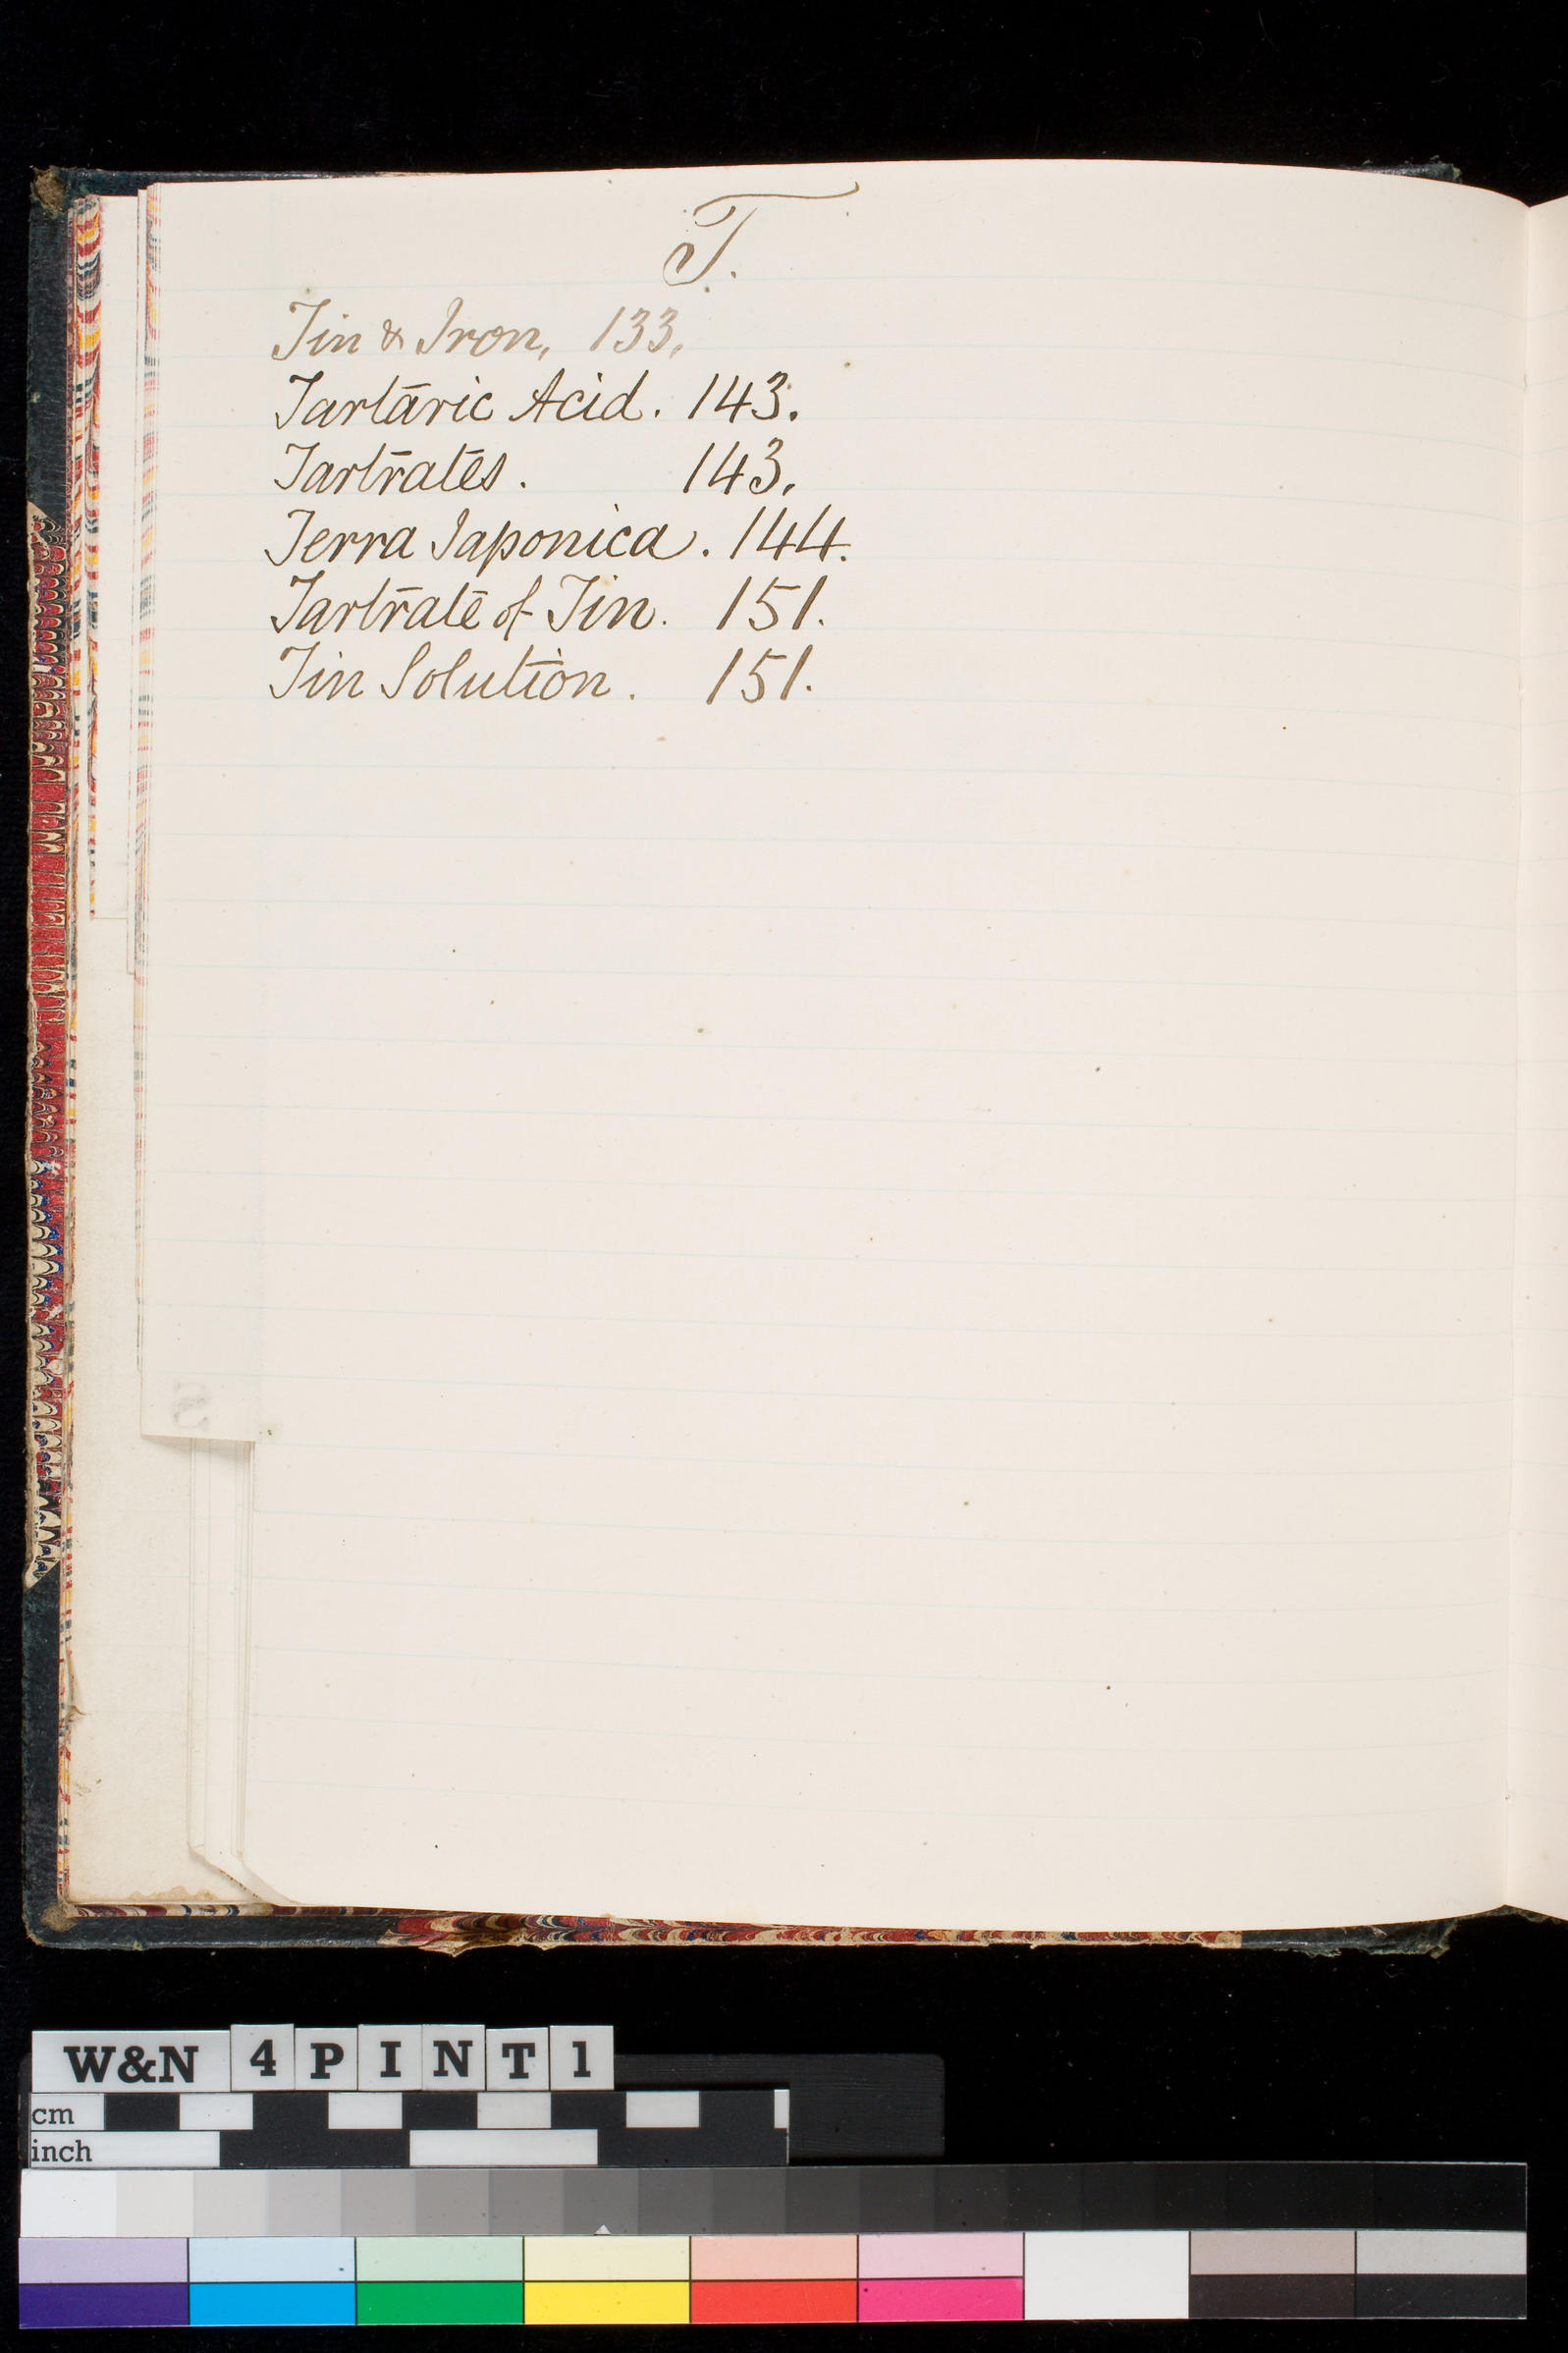 T.
Tin & Iron, 133,
Tartaric Acid. 143.
Tartrates. 143.
Terra Japonica. 144.
Tartrate of Tin. 151.
Tin Solution. 151.
S
W&N 4PINT1
cm
inch